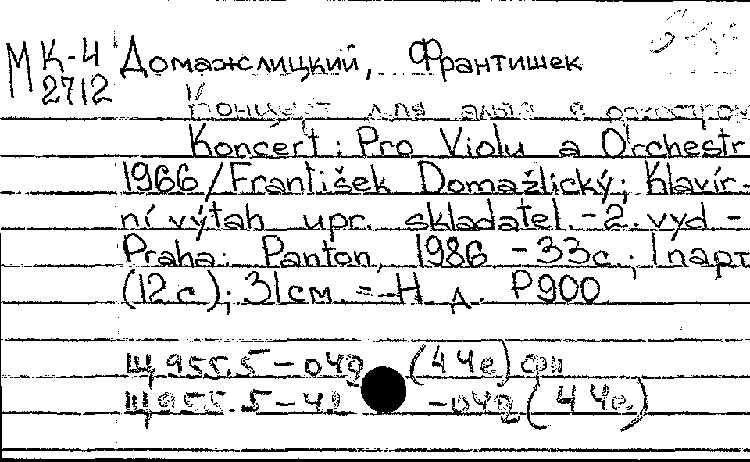 МК-4 Домажлицкий, Франтишек
2712
Концерт для альта с оркестром
Koncert: Pro Violu a Orchestr
1966/František Domažlický; Klavír-
ní výtah upr. skladatel.-2. vyd -
Praha: Panton, 1986 -33с.; 1 парт
(12с); 31см. =-Н. д. Р900
Щ955.5-049 (4Че)
Щ955.5-49 -049 (4Че)